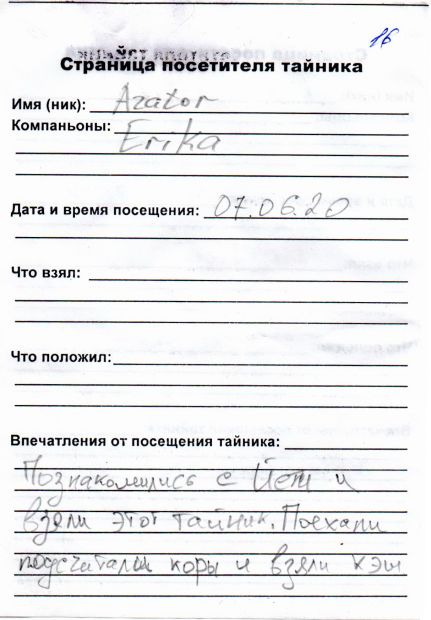 16
Страница посетителя тайника
Имя (ник): Azator
Компаньоны:
Erika
Дата и время посещения: 07.06.20
Что взял:
Что положил:
Впечатления от посещения тайника:
Познакомились с и
взяли этот тайник. Поехали
подсчитали коры и взяли кэш